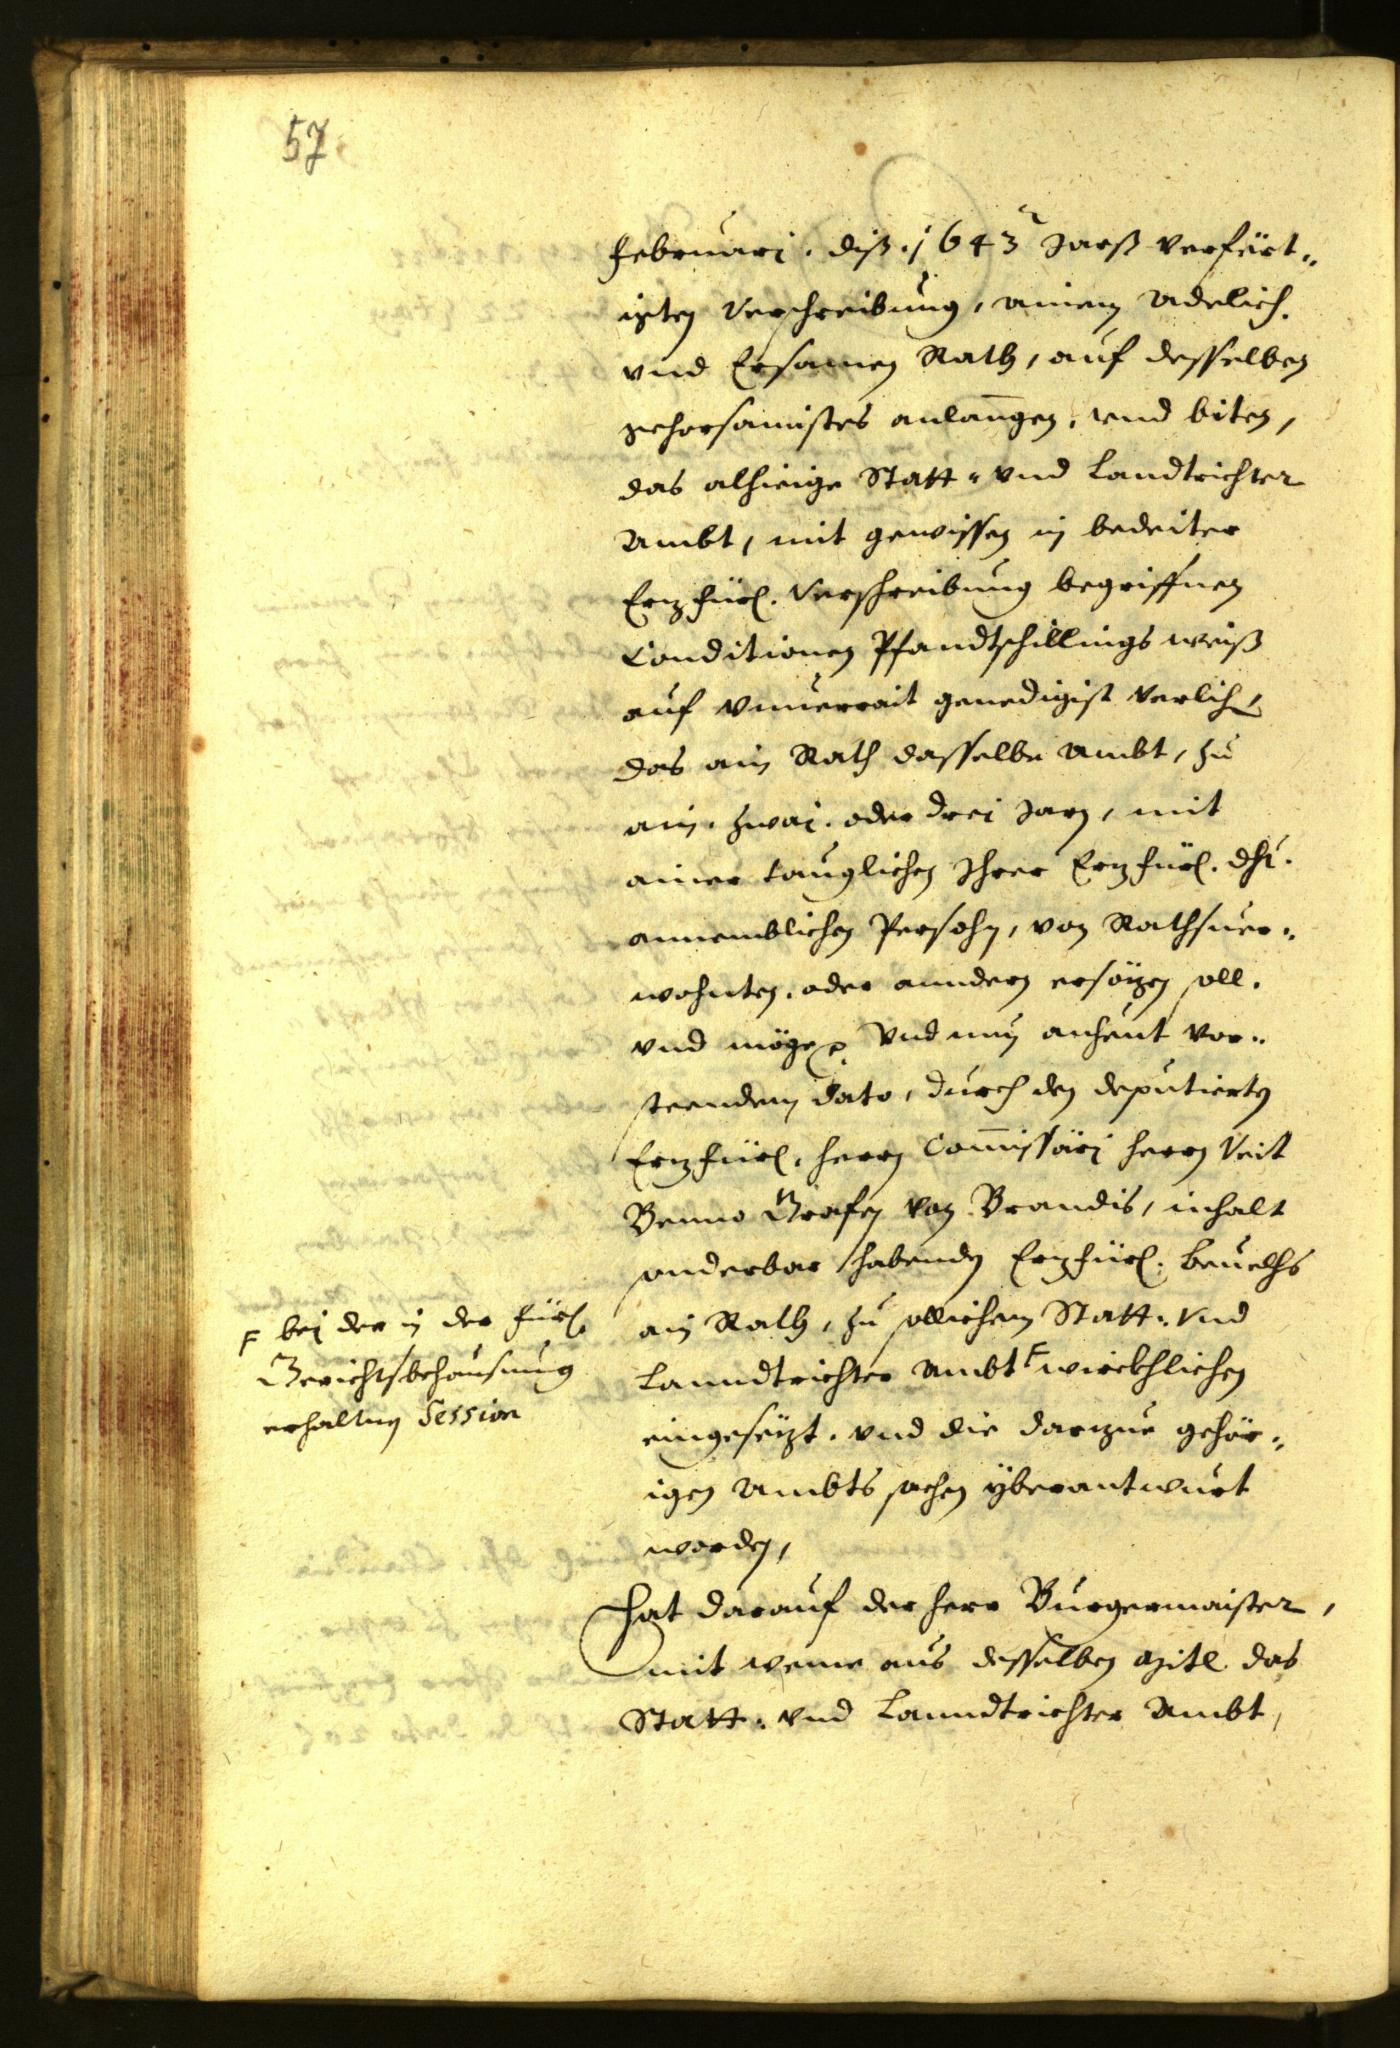 57
Februarj. diß .1643 Jarß verfert„
igten Verschreibung, ainem Adelich.
vnd Ersamen Rath, auf desselben
gehorsamistes anlangen, vnd biten,
das alhieige Statt- vnd Landtrichter
Ambt, mit gewissen in bedeiter
Erzfürl. Verschreibung begriffnen
Conditionen Pfandtschillings weiß
auf vnuerrait genedigist verlich,
das ain Rath dasselbe Ambt, zu
ain. zwaj. oder drej Jarn, mit
ainer tauglichen Ihrer Erzfürl. Dht.
annemblichen Persohn, von Rathsuer„
wohnten, oder anndern ersözen soll.
vnd möge, Vnd nun anheut vor„
steendem dato, durch den deputierten
Erzfürl. herrn Commissärj herrn Veit
Benno Grafen von Brandis, inhalt
sonderbar habenden Erzfürl. beuelhs
ain Rath, zu sollichem Statt- vnd
Lanndtrichter Ambt F würckhlichen
eingesezt. vnd die darzue gehör„
igen Ambts sachen yberantwurt
worden,
F bej der in der Fürl.
Gerichtsbehausung
erhaltnen Session
Hat darauf der herr Burgermaister,
mit weme aus desselben mitl das
Statt- vnd Lanndtrichter Ambt,